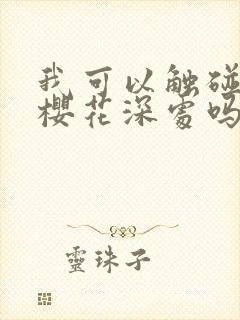 我可以触碰
樱花深处吗
靈珠子